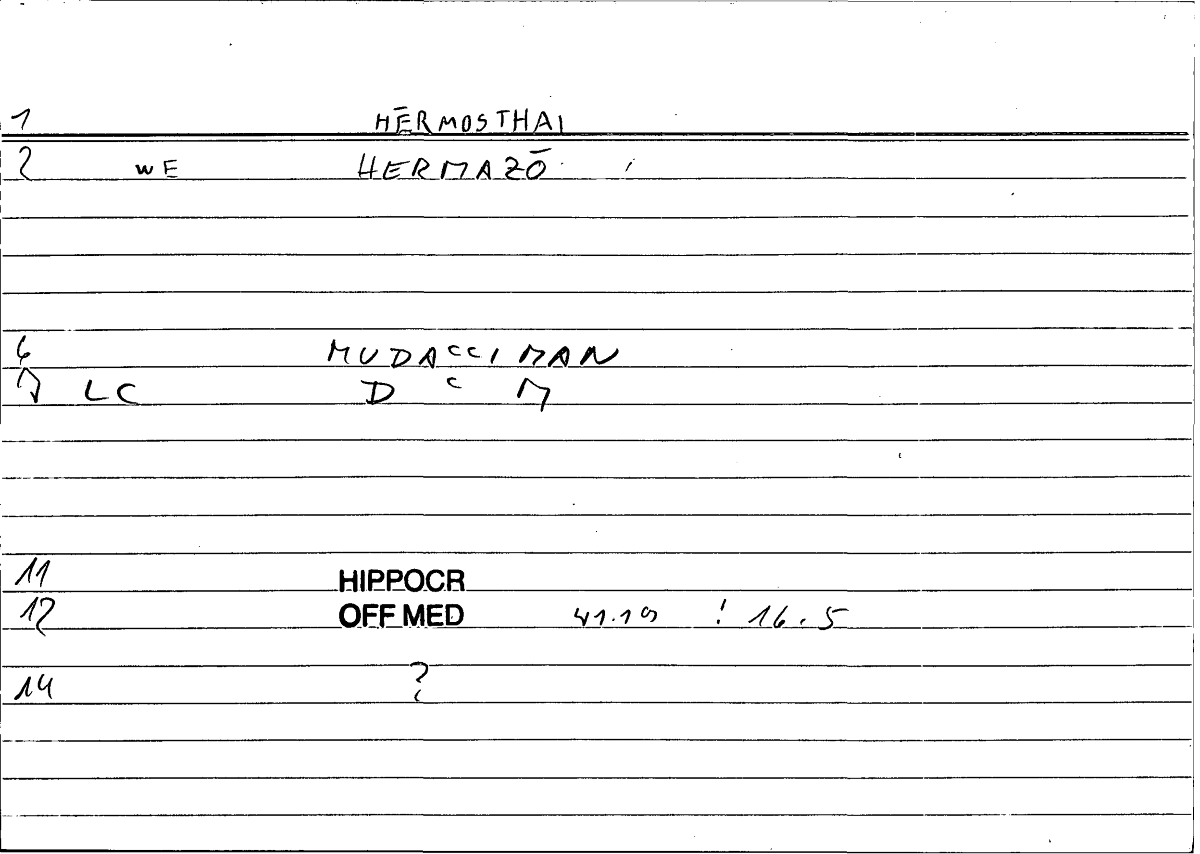 1 HĒRMOSTHAI
2 WE HERMAZŌ
6 MUDACCIMAN
7 LC D C M
11 HIPPOCR
12 OFF MED 41.19 ! 16.5
14 ?